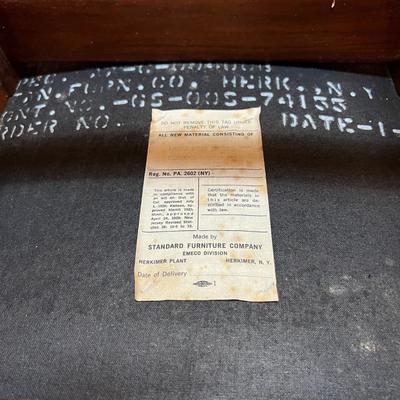 FURN. CO. HERK., N.Y
NT. NO.-GS-00S-74155
RDER NO. DATE-1-
DO NOT REMOVE THIS TAG UNDER
PENALTY OF LAW
ALL NEW MATERIAL CONSISTING OF
Reg. No. PA. 2602 (NY)
This article is made
in compliance with
an act of Dist. of
Col. approved July
3, 1926; Kansas, ap-
proved March 1923;
Minn., approved
April 24, 1929; New
Jersey Revised Stat-
utes 26: 10-6 to 18.
Certification is made
that the materials in
this article are de-
scribed in accordance
with law.
Made by
STANDARD FURNITURE COMPANY
EMECO DIVISION
HERKIMER PLANT HERKIMER, N. Y.
Date of Delivery
1